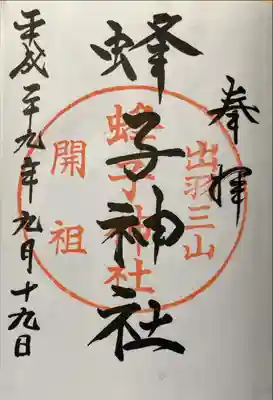 奉拝
出羽三山
蜂子神社
蜂子神社
開祖
平成二十九年九月十九日